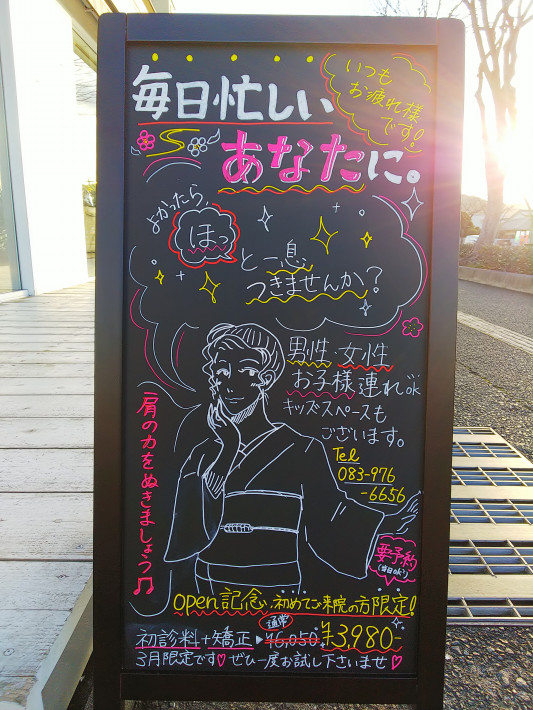 毎日忙しい
いつも
お疲れ様
です!
あなたに。
よかったら、
ほっ
と一息
つきませんか?
男性・女性
お子様連れok
キッズスペースも
ございます。
Tel
083-976
-6656
肩の力をぬきましょう♫
要予約
(当日ok)
open記念.初めてご来院の方限定!
通常
初診料+矯正▶¥6,050 ¥3,980-
3月限定です♡ ぜひ一度お試し下さいませ♡